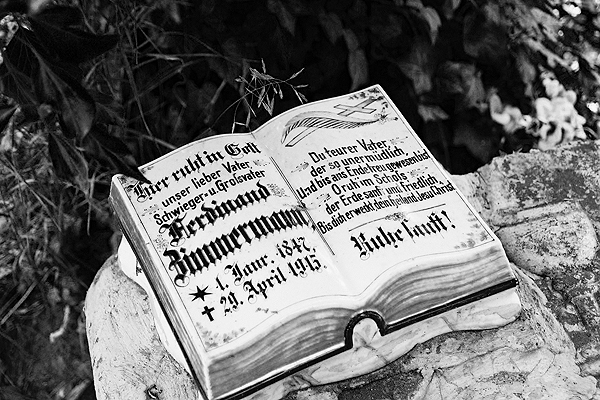 Hier ruht in Gott
unser lieber Vater,
Schwieger- u. Großvater
Ferdinand
Zimmermann
✶ 1. Janr. 1847.
✝ 29. April 1915.
Du teurer Vater,
der so unermüdlich,
Und bis ans Ende treu gewesen bist,
O ruh' im Schoß
der Erde sanft und friedlich,
Bis dich erweckt dein Heiland Jesu Christ.
Ruhe sanft!